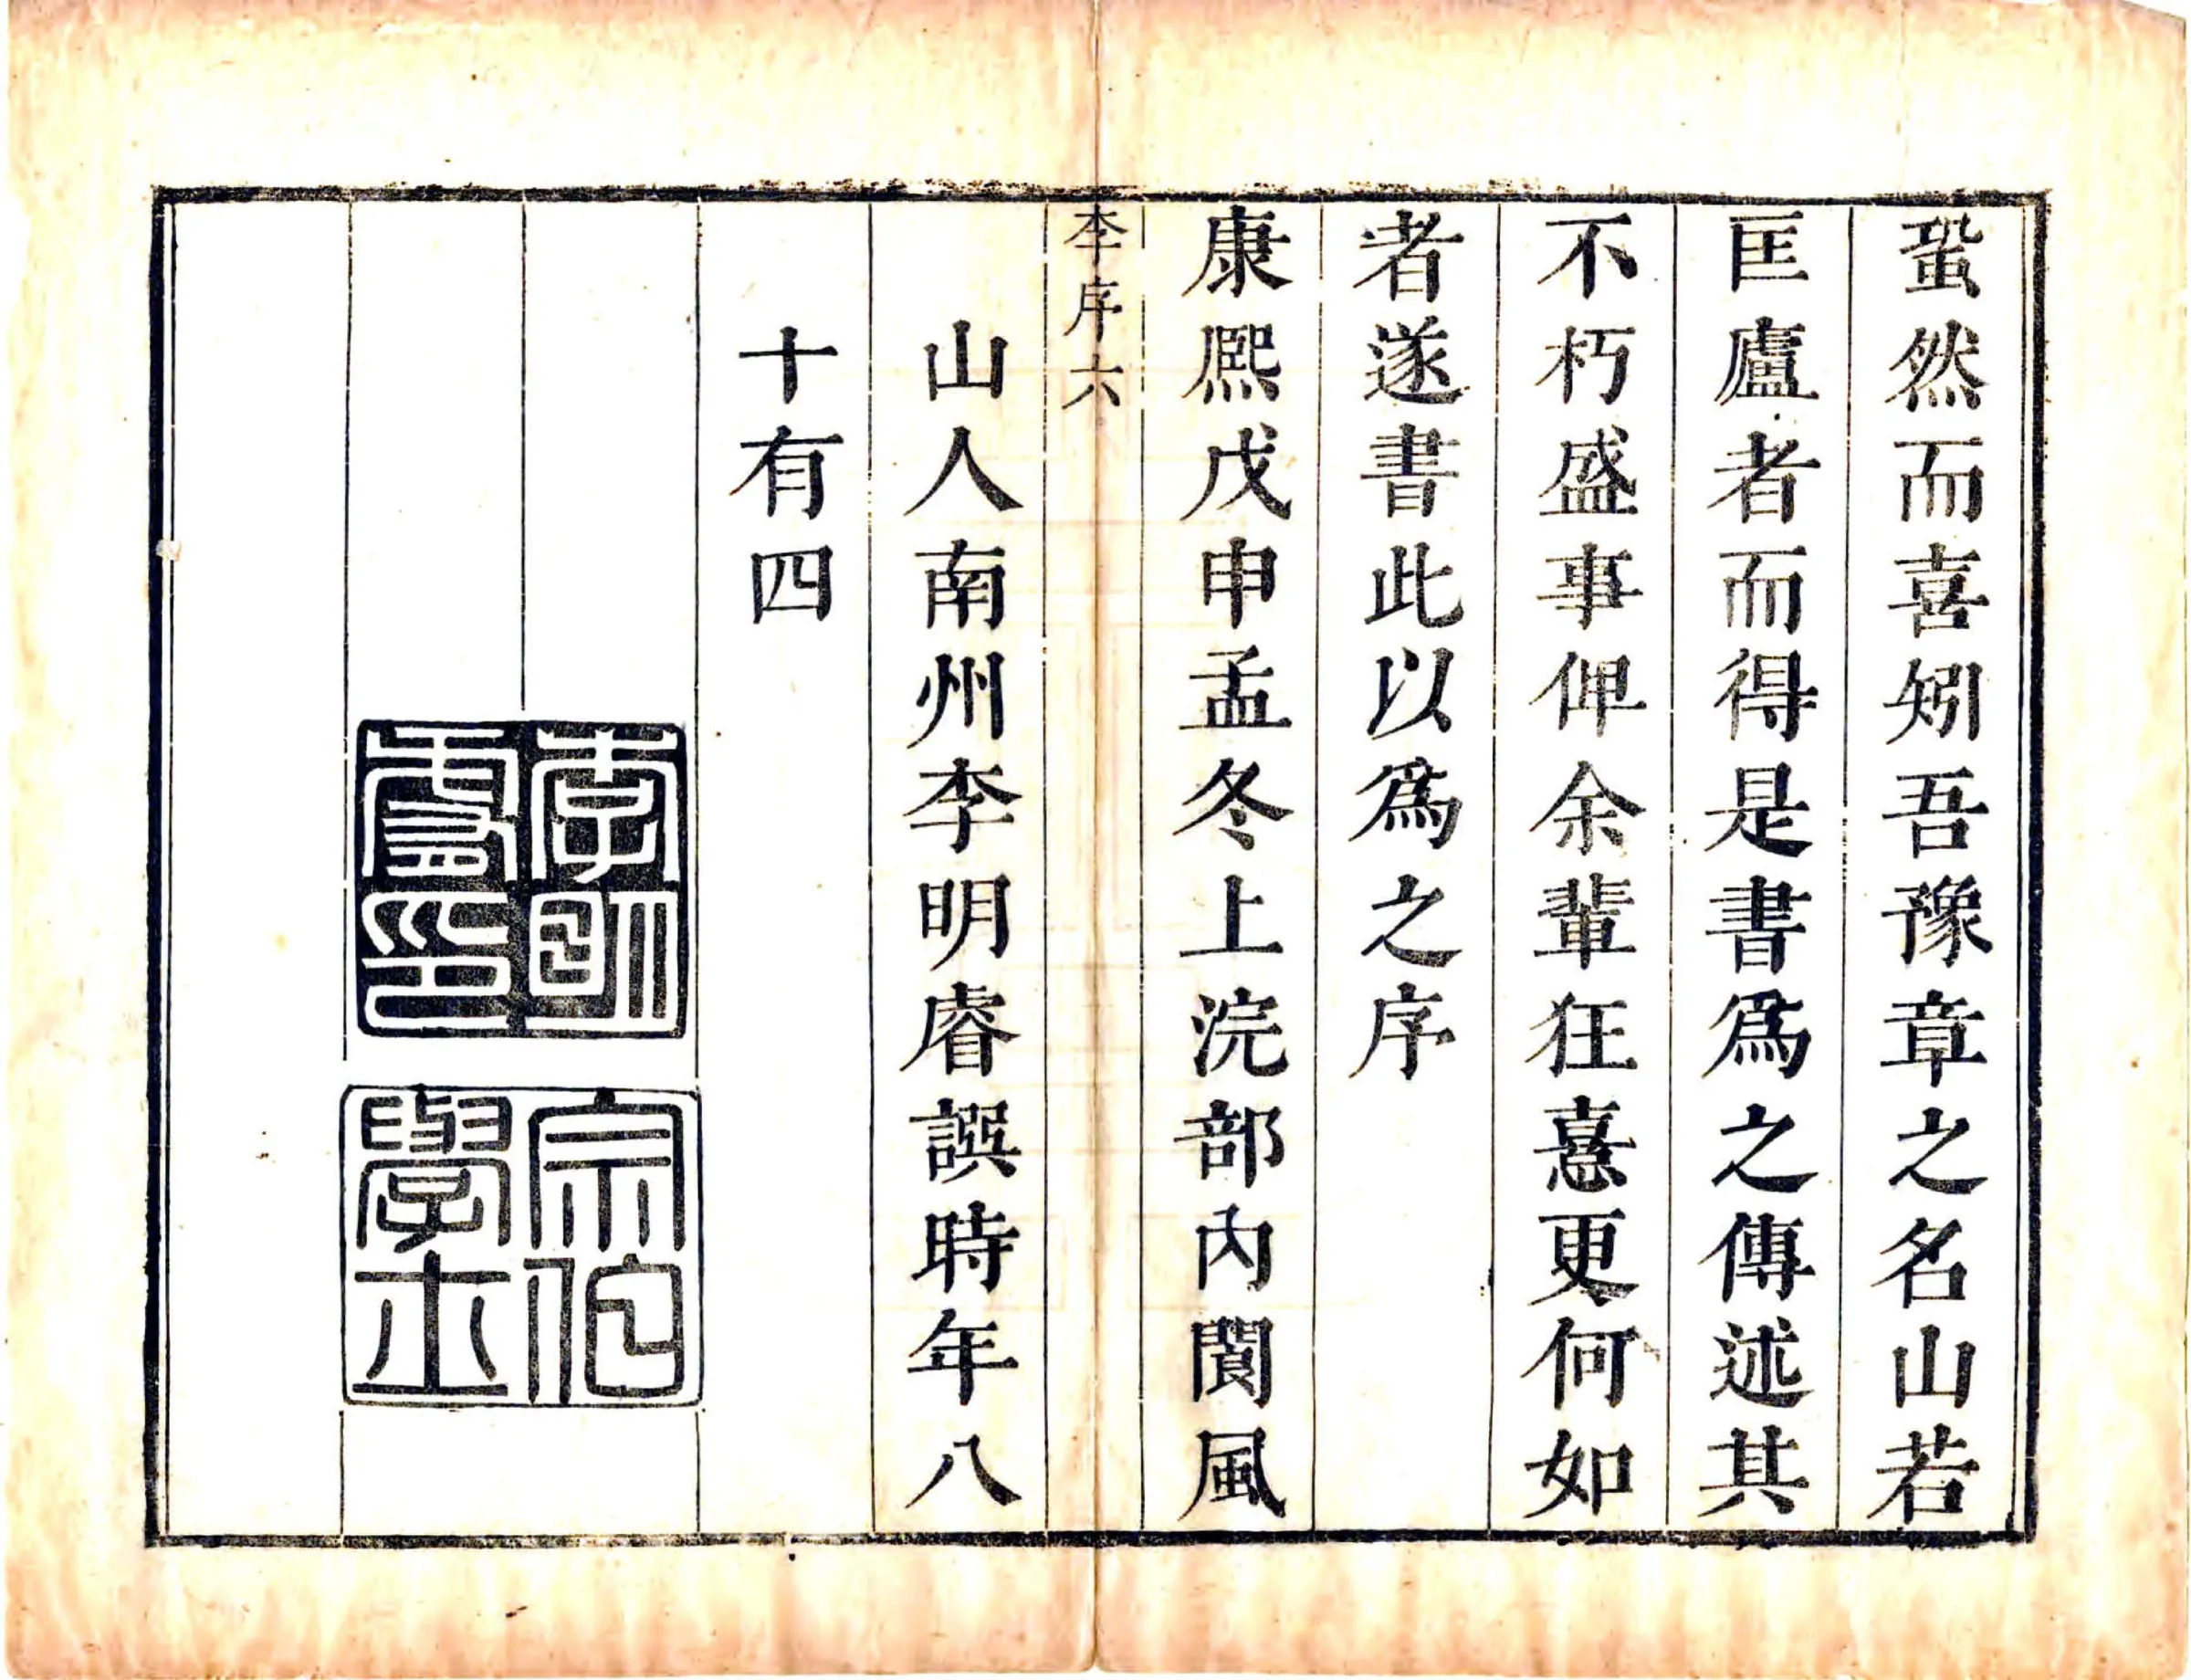 蛩然而喜矧吾豫章之名山若
匡廬者而得是書爲之傳述其
不朽盛事俾余輩狂憙更何如
者遂書此以爲之序
康熙戊申孟冬上浣部內閬風
李序六
山人南州李明睿譔時年八
十有四
李明睿印
宗伯學士